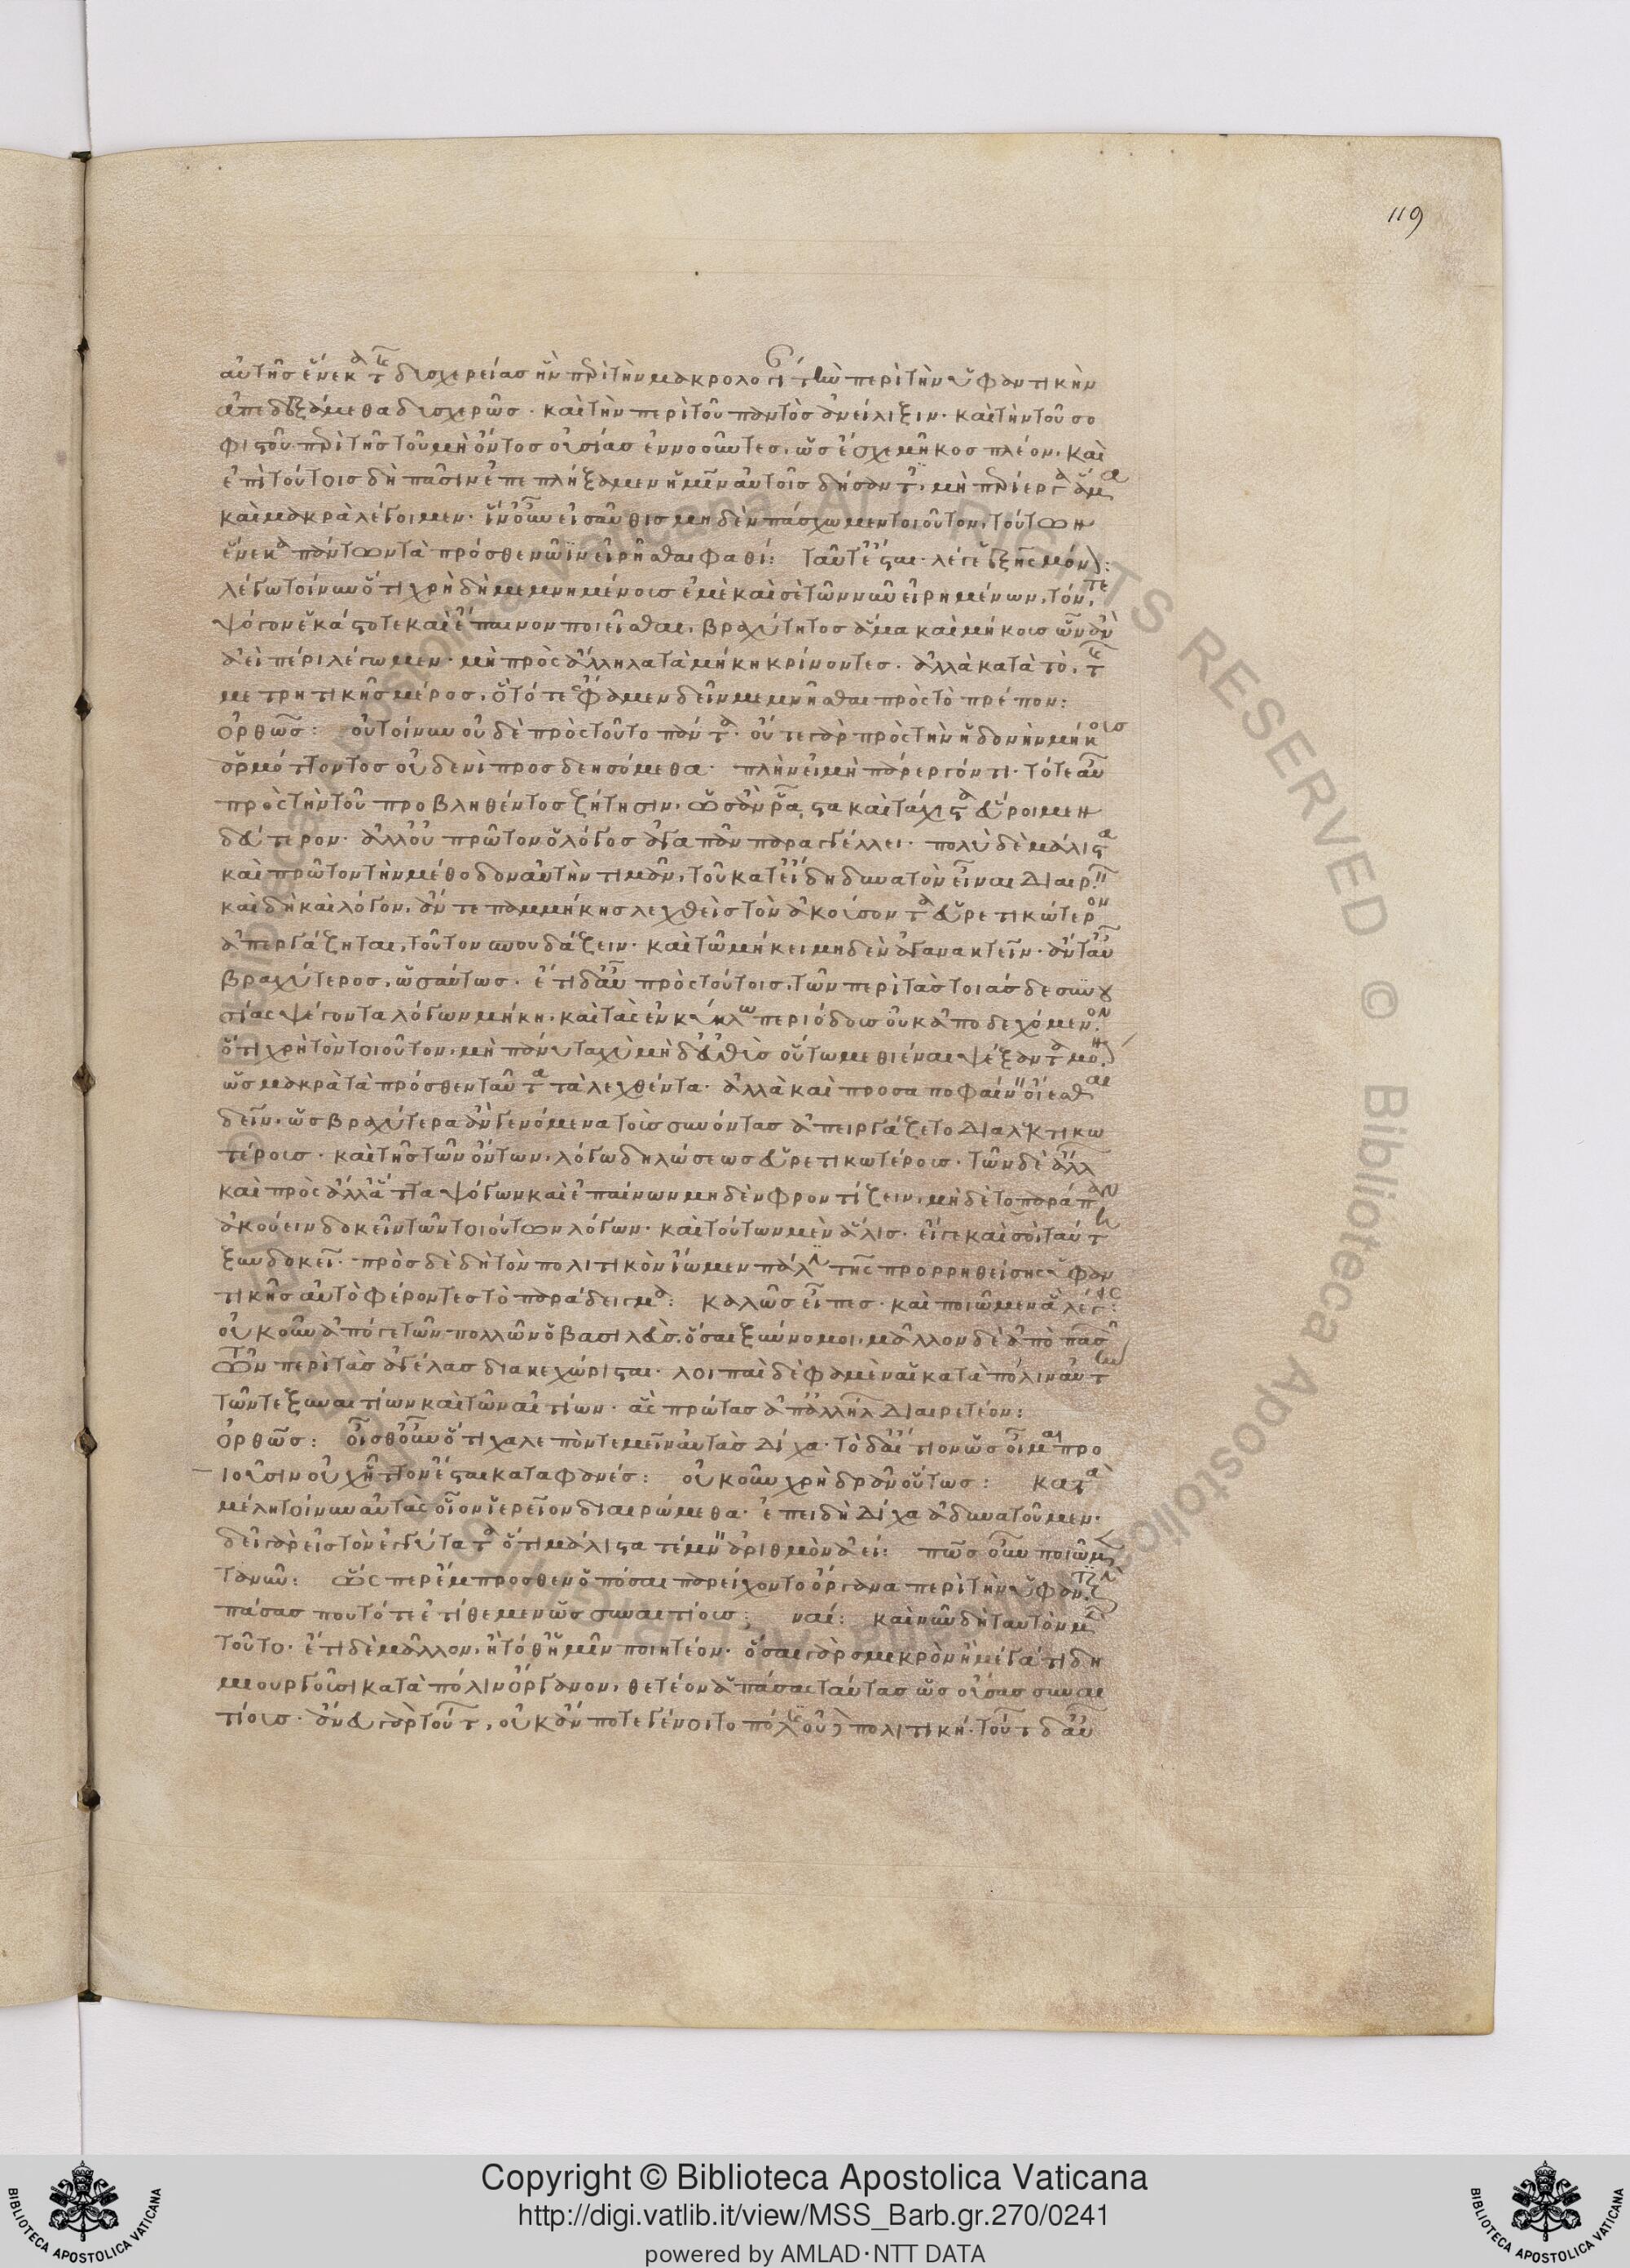 119
αὐτῆς ἕνεκα τῆς δυσχερείας ἣν περὶ τὴν μακρολογίαν τὴν περὶ τὴν ὑφαντικὴν
ἀπεδεξάμεθα δυσχερῶς · καὶ τὴν περὶ τοῦ παντὸς ἀνείλιξιν · καὶ τὴν τοῦ σο
φιστοῦ περὶ τῆς τοῦ μὴ ὄντος οὐσίας ἐννοοῦντες, ὡς ἔσχε μῆκος πλέον, καὶ
ἐπὶ τούτοις δὴ πᾶσιν ἐπεπλήξαμεν ἡμῖν αὐτοῖς δείσαντες, μὴ περίεργα ἅμα
καὶ μακρὰ λέγοιμεν · ἵν' οὖν εἰσαῦθις μηδὲν πάσχωμεν τοιοῦτον, τούτων
ἕνεκα πάντων τὰ πρόσθεν νῷν εἰρῆσθαι φαθί: ταῦτ' ἔσται · λέγε ἑξῆς μόνον:
λέγω τοίνυν ὅτι χρὴ δὴ μεμνημένους ἐμὲ καὶ σὲ τῶν νῦν εἰρημένων, τόν τε
ψόγον ἑκάστοτε καὶ ἔπαινον ποιεῖσθαι, βραχύτητος ἅμα καὶ μήκους ὧν ἂν
ἀεὶ πέρι λέγωμεν · μὴ πρὸς ἄλληλα τὰ μήκη κρίνοντες · ἀλλὰ κατὰ τὸ, τῆς
μετρητικῆς μέρος, ὃ τότε ἔφαμεν δεῖν μεμνῆσθαι πρὸς τὸ πρέπον:
ὀρθῶς: οὐ τοίνυν οὐδὲ πρὸς τοῦτο πάντα · οὔτε γὰρ πρὸς τὴν ἡδονὴν μήκους
ἁρμόττοντος οὐδενὶ προσδεησόμεθα · πλὴν εἰ μὴ πάρεργόν τι · τό τε αὖ
πρὸς τὴν τοῦ προβληθέντος ζήτησιν, ὡς ἂν ῥᾷστα καὶ τάχιστα εὕροιμεν
δεύτερον · ἀλλ' οὐ πρῶτον ὁ λόγος ἀγαπᾶν παραγγέλλει · πολὺ δὲ μάλιστα
καὶ πρῶτον τὴν μέθοδον αὐτὴν τιμᾶν, τοῦ κατ' εἴδη δυνατὸν εἶναι διαιρεῖν
καὶ δὴ καὶ λόγον, ἄν τε παμμήκης λεχθεὶς τὸν ἀκούσαντα εὑρετικώτερον
ἀπεργάζηται, τοῦτον σπουδάζειν · καὶ τῷ μήκει μηδὲν ἀγανακτεῖν · ἄντ' αὖ
βραχύτερος, ὡσαύτως · ἔτι δ' αὖ πρὸς τούτοις, τῶν περὶ τὰς τοιάσδε συνου
σίας ψέγοντα λόγων μήκη, καὶ τὰς ἐν κύκλῳ περιόδους οὐκ ἀποδεχόμενον,
ὅτι χρὴ τὸν τοιοῦτον, μὴ πάνυ ταχὺ μὴ δ' εὐθὺς οὕτω μεθιέναι ψέξαντα μόνον
ὡς μακρὰ τὰ πρόσθεν ταῦτα τὰ λεχθέντα · ἀλλὰ καὶ προσαποφαίνειν οἴεσθαι
δεῖν, ὡς βραχύτερα ἂν γενόμενα τοὺς συνόντας ἀπειργάζετο διαλεκτικω
τέρους · καὶ τῆς τῶν ὄντων, λόγῳ δηλώσεως εὑρετικωτέρους · τῶν δὲ ἄλλων
καὶ πρὸς ἄλλ' ἄττα ψόγων καὶ ἐπαίνων μηδὲν φροντίζειν, μὴ δὲ τὸ παράπαν
ἀκούειν δοκεῖν τῶν τοιούτων λόγων · καὶ τούτων μὲν ἅλις · εἴ γε καὶ σοὶ ταύτῃ
ξυνδοκεῖ · πρὸς δὲ δὴ τὸν πολιτικὸν ἴωμεν πάλιν τῆς προρρηθείσης ὑφαν
τικῆς αὐτῷ φέροντες τὸ παράδειγμα: καλῶς εἶπες · καὶ ποιῶμεν ἃ λέγεις:
οὐκοῦν ἀπό γε τῶν πολλῶν ὁ βασιλεὺς, ὅσαι ξύννομοι, μᾶλλον δὲ ἀπὸ πασῶν
τῶν περὶ τὰς ἀγέλας διακεχώρισται · λοιπαὶ δὲ φαμὲν αἱ κατὰ πόλιν αὐτὴν
τῶν τε ξυναιτίων καὶ τῶν αἰτίων · ἃς πρώτας ἀπ' ἀλλήλων διαιρετέον:
ὀρθῶς: οἶσθ' οὖν ὅτι χαλεπὸν τεμεῖν αὐτὰς δίχα · τὸ δ' αἴτιον ὡς οἶμαι προ
ϊοῦσιν οὐχ ἧττον ἔσται καταφανές: οὐκοῦν χρὴ δρᾶν οὕτως: κατὰ
μέλη τοίνυν αὐτὰς οἷον ἱερεῖον διαιρώμεθα · ἐπειδὴ δίχα ἀδυνατοῦμεν ·
δεῖ γὰρ εἰς τὸν ἐγγύτατα ὅτι μάλιστα τέμνειν ἀριθμὸν ἀεί: πῶς οὖν ποιῶμεν
τανῦν: ὥσπερ ἔμπροσθεν ὁπόσαι παρείχοντο ὄργανα περὶ τὴν ὑφαντικὴν,
πάσας που τότε ἐτίθεμεν ὡς συναιτίους; ναί: καὶ νῦν δὴ ταυτὸν μὲν
τοῦτο · ἔτι δὲ μᾶλλον, ἢ τόθ' ἡμῖν ποιητέον · ὅσαι γὰρ σμικρὸν ἢ μέγα τι δη
μιουργοῦσι κατὰ πόλιν ὄργανον, θετέον ἁπάσας ταύτας ὡς οὔσας συναι
τίους · ἄνευ γὰρ τούτων, οὐκ ἄν ποτε γένοιτο πόλις οὐδὲ πολιτική · τούτων δ' αὖ
Copyright © Biblioteca Apostolica Vaticana
http://digi.vatlib.it/view/MSS_Barb.gr.270/0241
powered by AMLAD·NTT DATA